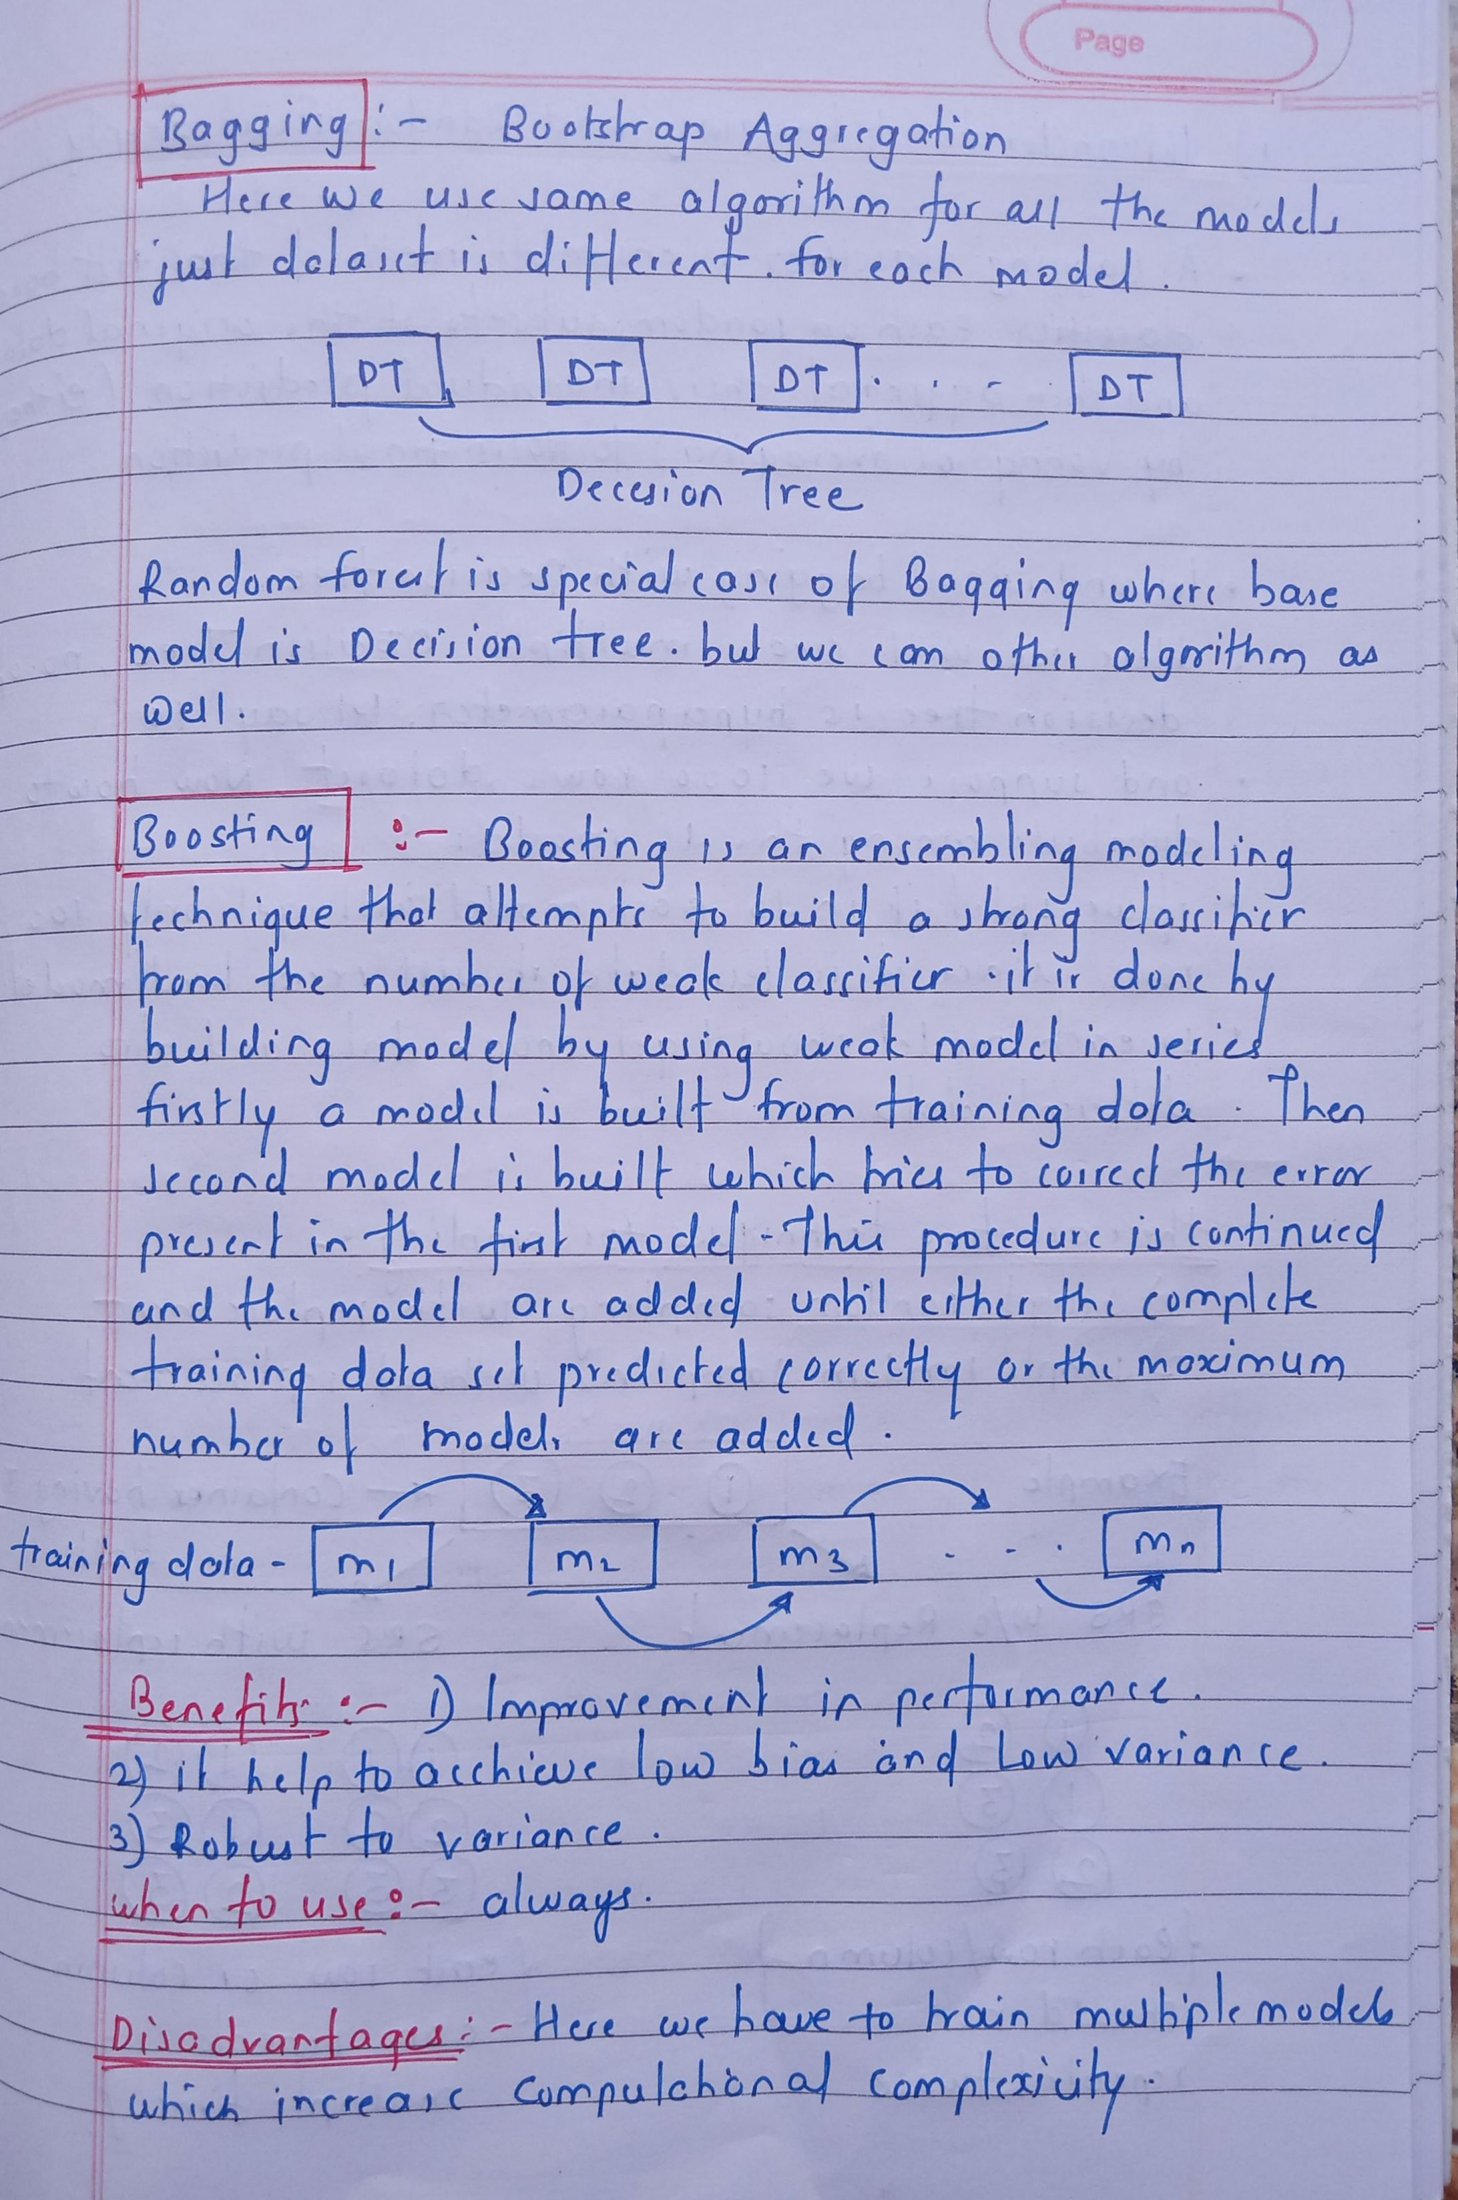 Page
Bagging :- Bootstrap Aggregation
Here we use same algorithm for all the models
just dataset is different. for each model.
DT DT DT . . - DT
Decesion Tree
Random forest is special case of Bagging where base
model is Decision tree. but we can other algorithm as
well.
Boosting :- Boosting is an ensembling modeling
technique that attempts to build a strong classifier
from the number of weak classifier . it is done by
building model by using weak model in series
firstly a model is built from training data . Then
second model is built which tries to correct the error
present in the first model - This procedure is continued
and the model are added until either the complete
training data set predicted correctly or the maximum
number of models are added .
training data - m1 m2 m3 . - . mn
Benefits :- 1) Improvement in performance .
2) it help to acchieve low bias and Low variance .
3) Robust to variance .
when to use :- always.
Disadvantages :- Here we have to train multiple models
which increase computational complexicity .